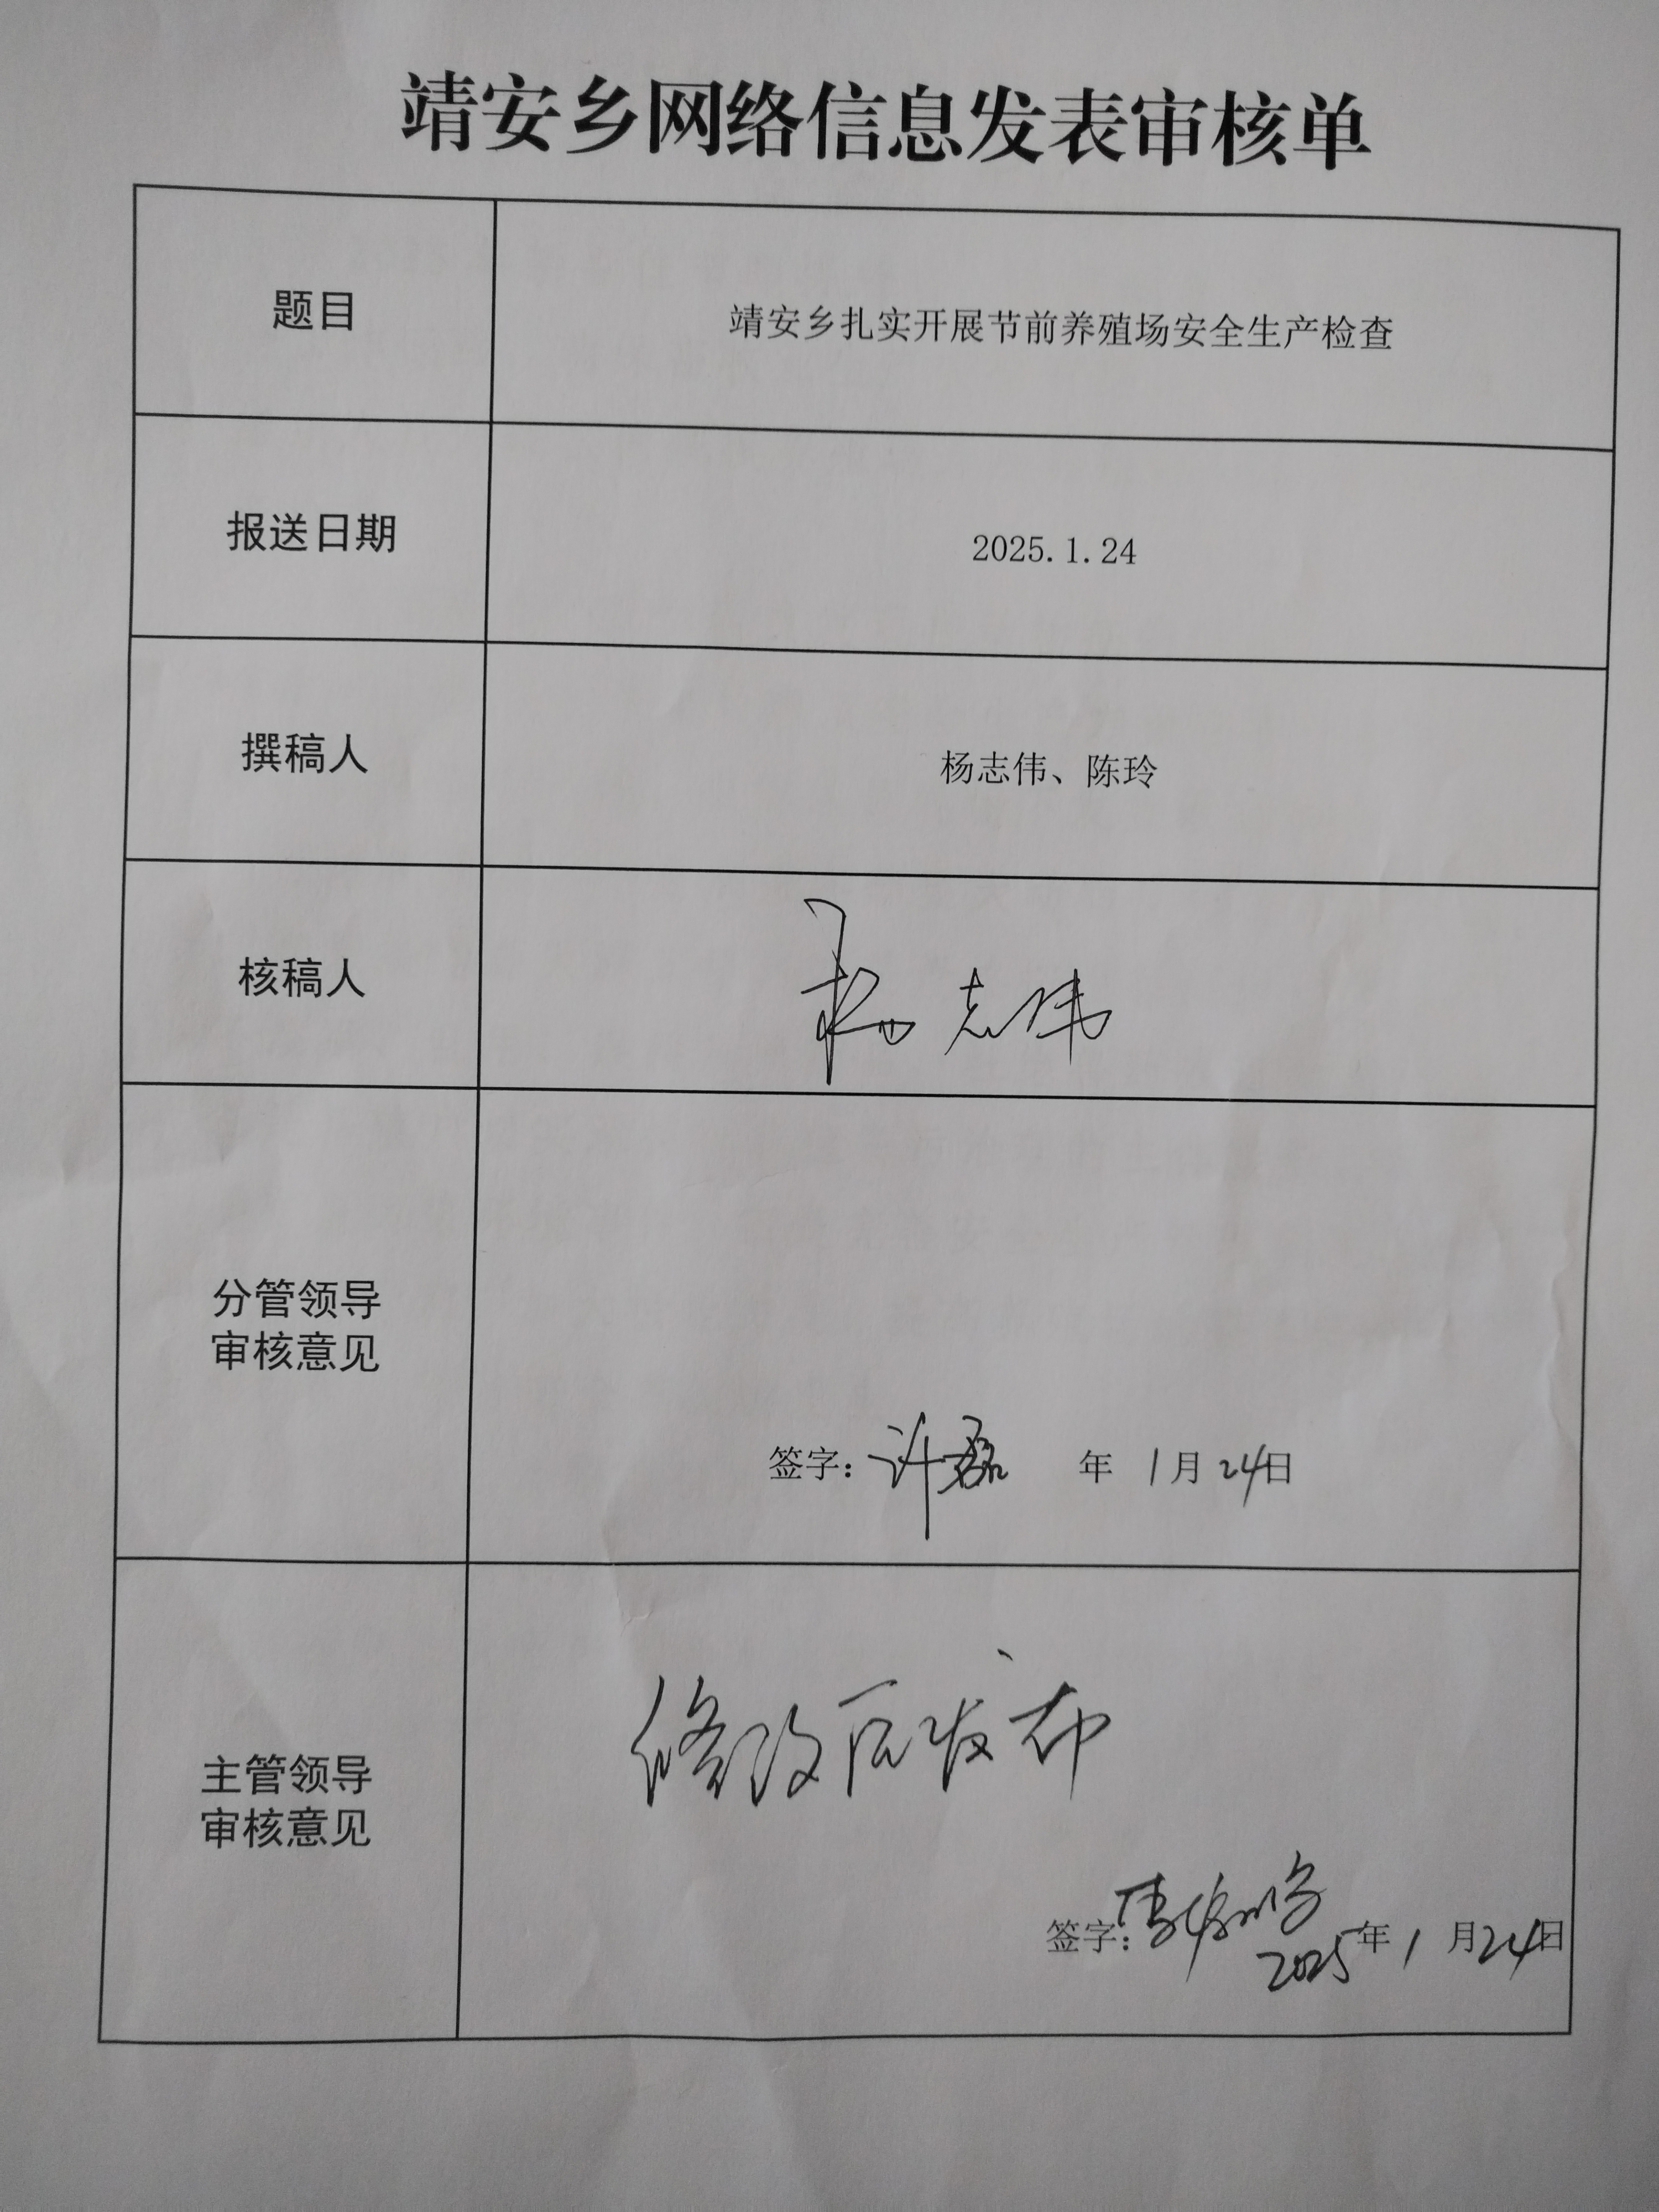 靖安乡网络信息发表审核单
题目
靖安乡扎实开展节前养殖场安全生产检查
报送日期
2025.1.24
撰稿人
杨志伟、陈玲
核稿人
杨志伟
分管领导
审核意见
签字：许磊 年 1月24日
主管领导
审核意见
修改后发布
签字：
2025年1月24日